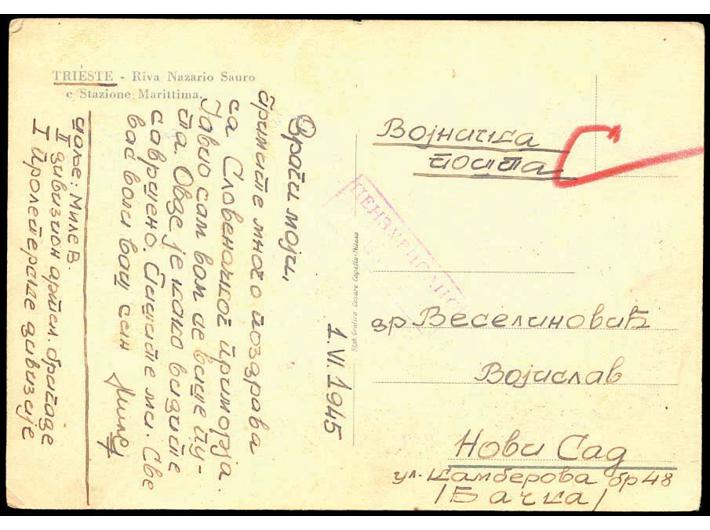 TRIESTE - Riva Nazario Sauro
e Stazione Marittima.
Драги моји,
Примите много поздрава
са Словеначког приморја.
Јавио сам вам се више пу-
та. Овде је како видите
савршено. Пишите ми. Све
вас воли ваш син Миле
шаље: Миле В.
II дивизион артил. бригаде
I Пролетерске дивизије
1.VI.1945
Војничка
пошта
ЦЕНЗУРИСАНО
др Веселиновић
Војислав
Нови Сад
ул. Дамберова бр 48
/Бачка/